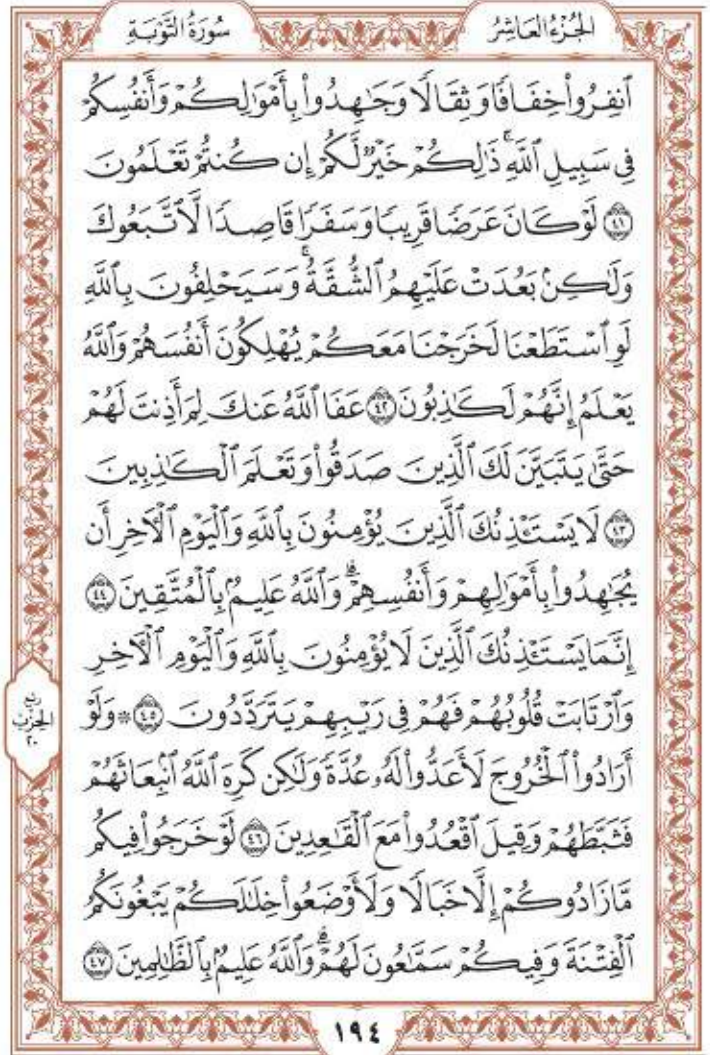 الجُزْءُ العَاشِرُ
سُورَةُ التَّوْبَةِ
ٱنفِرُوا۟ خِفَافًا وَثِقَالًا وَجَـٰهِدُوا۟ بِأَمْوَٰلِكُمْ وَأَنفُسِكُمْ
فِى سَبِيلِ ٱللَّهِ ۚ ذَٰلِكُمْ خَيْرٌ لَّكُمْ إِن كُنتُمْ تَعْلَمُونَ
٤١ لَوْ كَانَ عَرَضًا قَرِيبًا وَسَفَرًا قَاصِدًا لَّٱتَّبَعُوكَ
وَلَـٰكِنۢ بَعُدَتْ عَلَيْهِمُ ٱلشُّقَّةُ ۚ وَسَيَحْلِفُونَ بِٱللَّهِ
لَوِ ٱسْتَطَعْنَا لَخَرَجْنَا مَعَكُمْ يُهْلِكُونَ أَنفُسَهُمْ وَٱللَّهُ
يَعْلَمُ إِنَّهُمْ لَكَـٰذِبُونَ ٤٢ عَفَا ٱللَّهُ عَنكَ لِمَ أَذِنتَ لَهُمْ
حَتَّىٰ يَتَبَيَّنَ لَكَ ٱلَّذِينَ صَدَقُوا۟ وَتَعْلَمَ ٱلْكَـٰذِبِينَ
٤٣ لَا يَسْتَـْٔذِنُكَ ٱلَّذِينَ يُؤْمِنُونَ بِٱللَّهِ وَٱلْيَوْمِ ٱلْـَٔاخِرِ أَن
يُجَـٰهِدُوا۟ بِأَمْوَٰلِهِمْ وَأَنفُسِهِمْ ۗ وَٱللَّهُ عَلِيمٌۢ بِٱلْمُتَّقِينَ ٤٤
إِنَّمَا يَسْتَـْٔذِنُكَ ٱلَّذِينَ لَا يُؤْمِنُونَ بِٱللَّهِ وَٱلْيَوْمِ ٱلْـَٔاخِرِ
وَٱرْتَابَتْ قُلُوبُهُمْ فَهُمْ فِى رَيْبِهِمْ يَتَرَدَّدُونَ ٤٥ ۞ وَلَوْ
أَرَادُوا۟ ٱلْخُرُوجَ لَأَعَدُّوا۟ لَهُۥ عُدَّةً وَلَـٰكِن كَرِهَ ٱللَّهُ ٱنۢبِعَاثَهُمْ
فَثَبَّطَهُمْ وَقِيلَ ٱقْعُدُوا۟ مَعَ ٱلْقَـٰعِدِينَ ٤٦ لَوْ خَرَجُوا۟ فِيكُم
مَّا زَادُوكُمْ إِلَّا خَبَالًا وَلَأَوْضَعُوا۟ خِلَـٰلَكُمْ يَبْغُونَكُمُ
ٱلْفِتْنَةَ وَفِيكُمْ سَمَّـٰعُونَ لَهُمْ ۗ وَٱللَّهُ عَلِيمٌۢ بِٱلظَّـٰلِمِينَ ٤٧
رُبْعُ
الحِزْبِ
٢٠
١٩٤